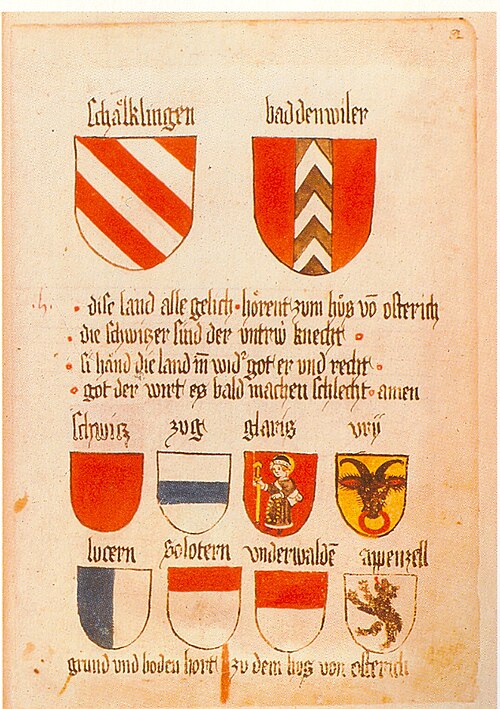 Schälklingen baddenwiler
dise land alle gelich hörent zum hůs vō osterich
die schwitzer sind der untrw knecht
si hānd die land m̄ wid' got er und recht
got der wirt es bald machen schlecht amen
schwitz zug glaris vry
lucern Solotern vnderwaldē appenzell
grund vnd boden hört zu dem hus von osterich